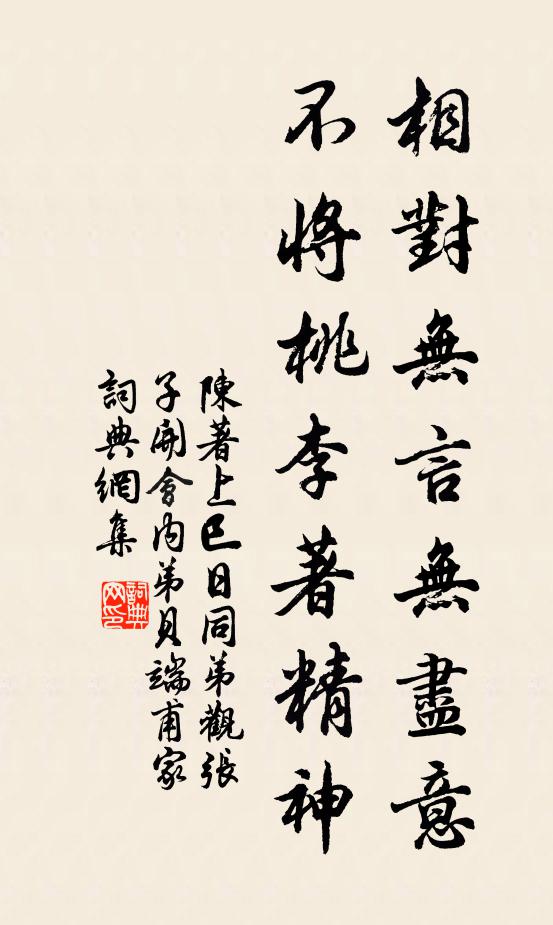 相對無言無盡意
不將桃李著精神
陳著上巳日同弟觀張
子開會內弟貝端甫家
詞典網集
詞典網印